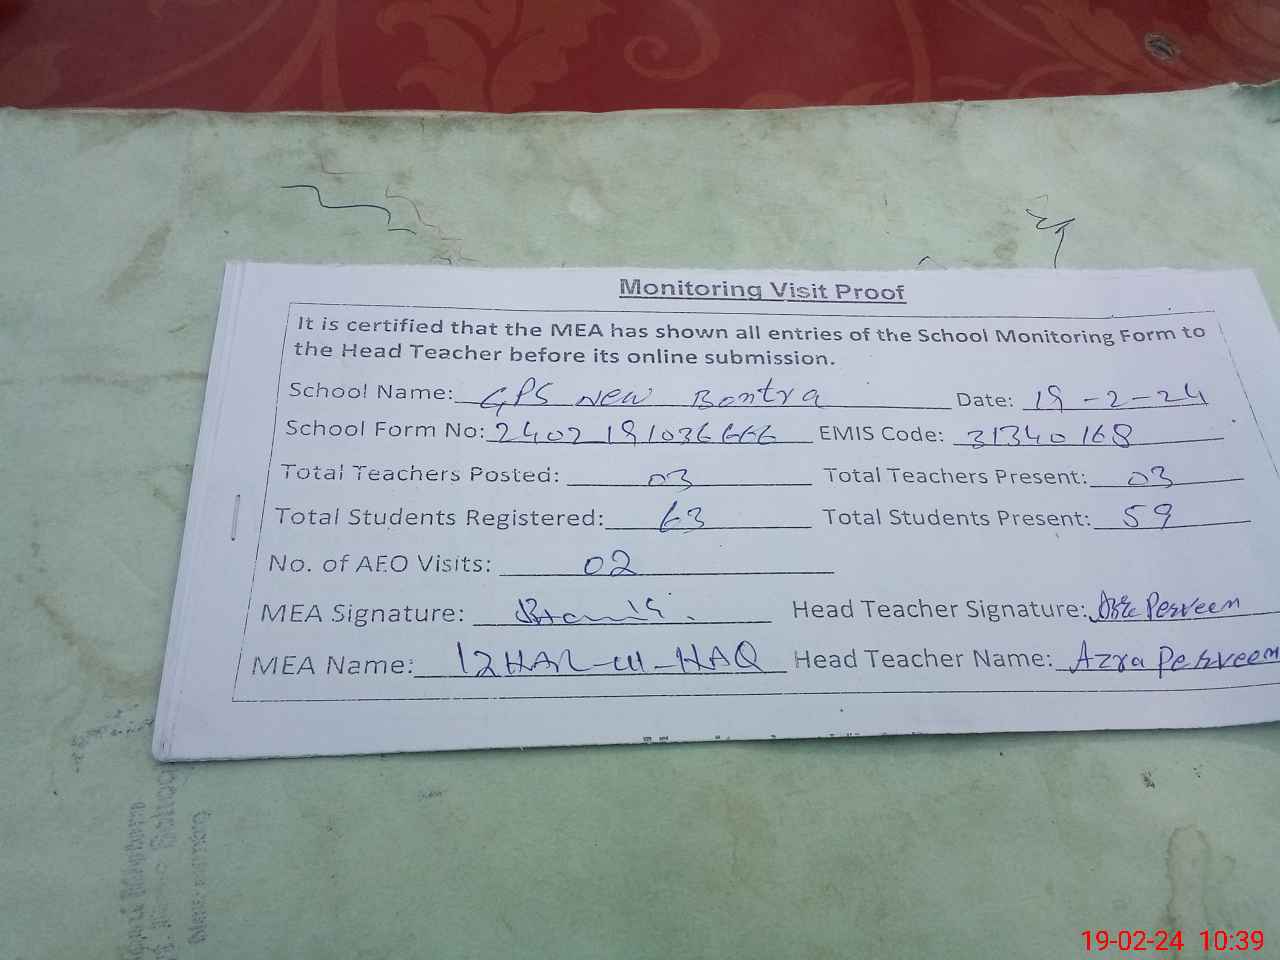 Monitoring Visit Proof
It is certified that the MEA has shown all entries of the School Monitoring Form to
the Head Teacher before its online submission.
School Name: GPS New Bontra Date: 19-2-24
School Form No: 2402191036666 EMIS Code: 31340168
Total Teachers Posted: 03 Total Teachers Present: 03
Total Students Registered: 63 Total Students Present: 59
No. of AEO Visits: 02
MEA Signature: Head Teacher Signature: Perveen
MEA Name: IZHAR-ul-HAQ Head Teacher Name: Azra Perveen
19-02-24 10:39